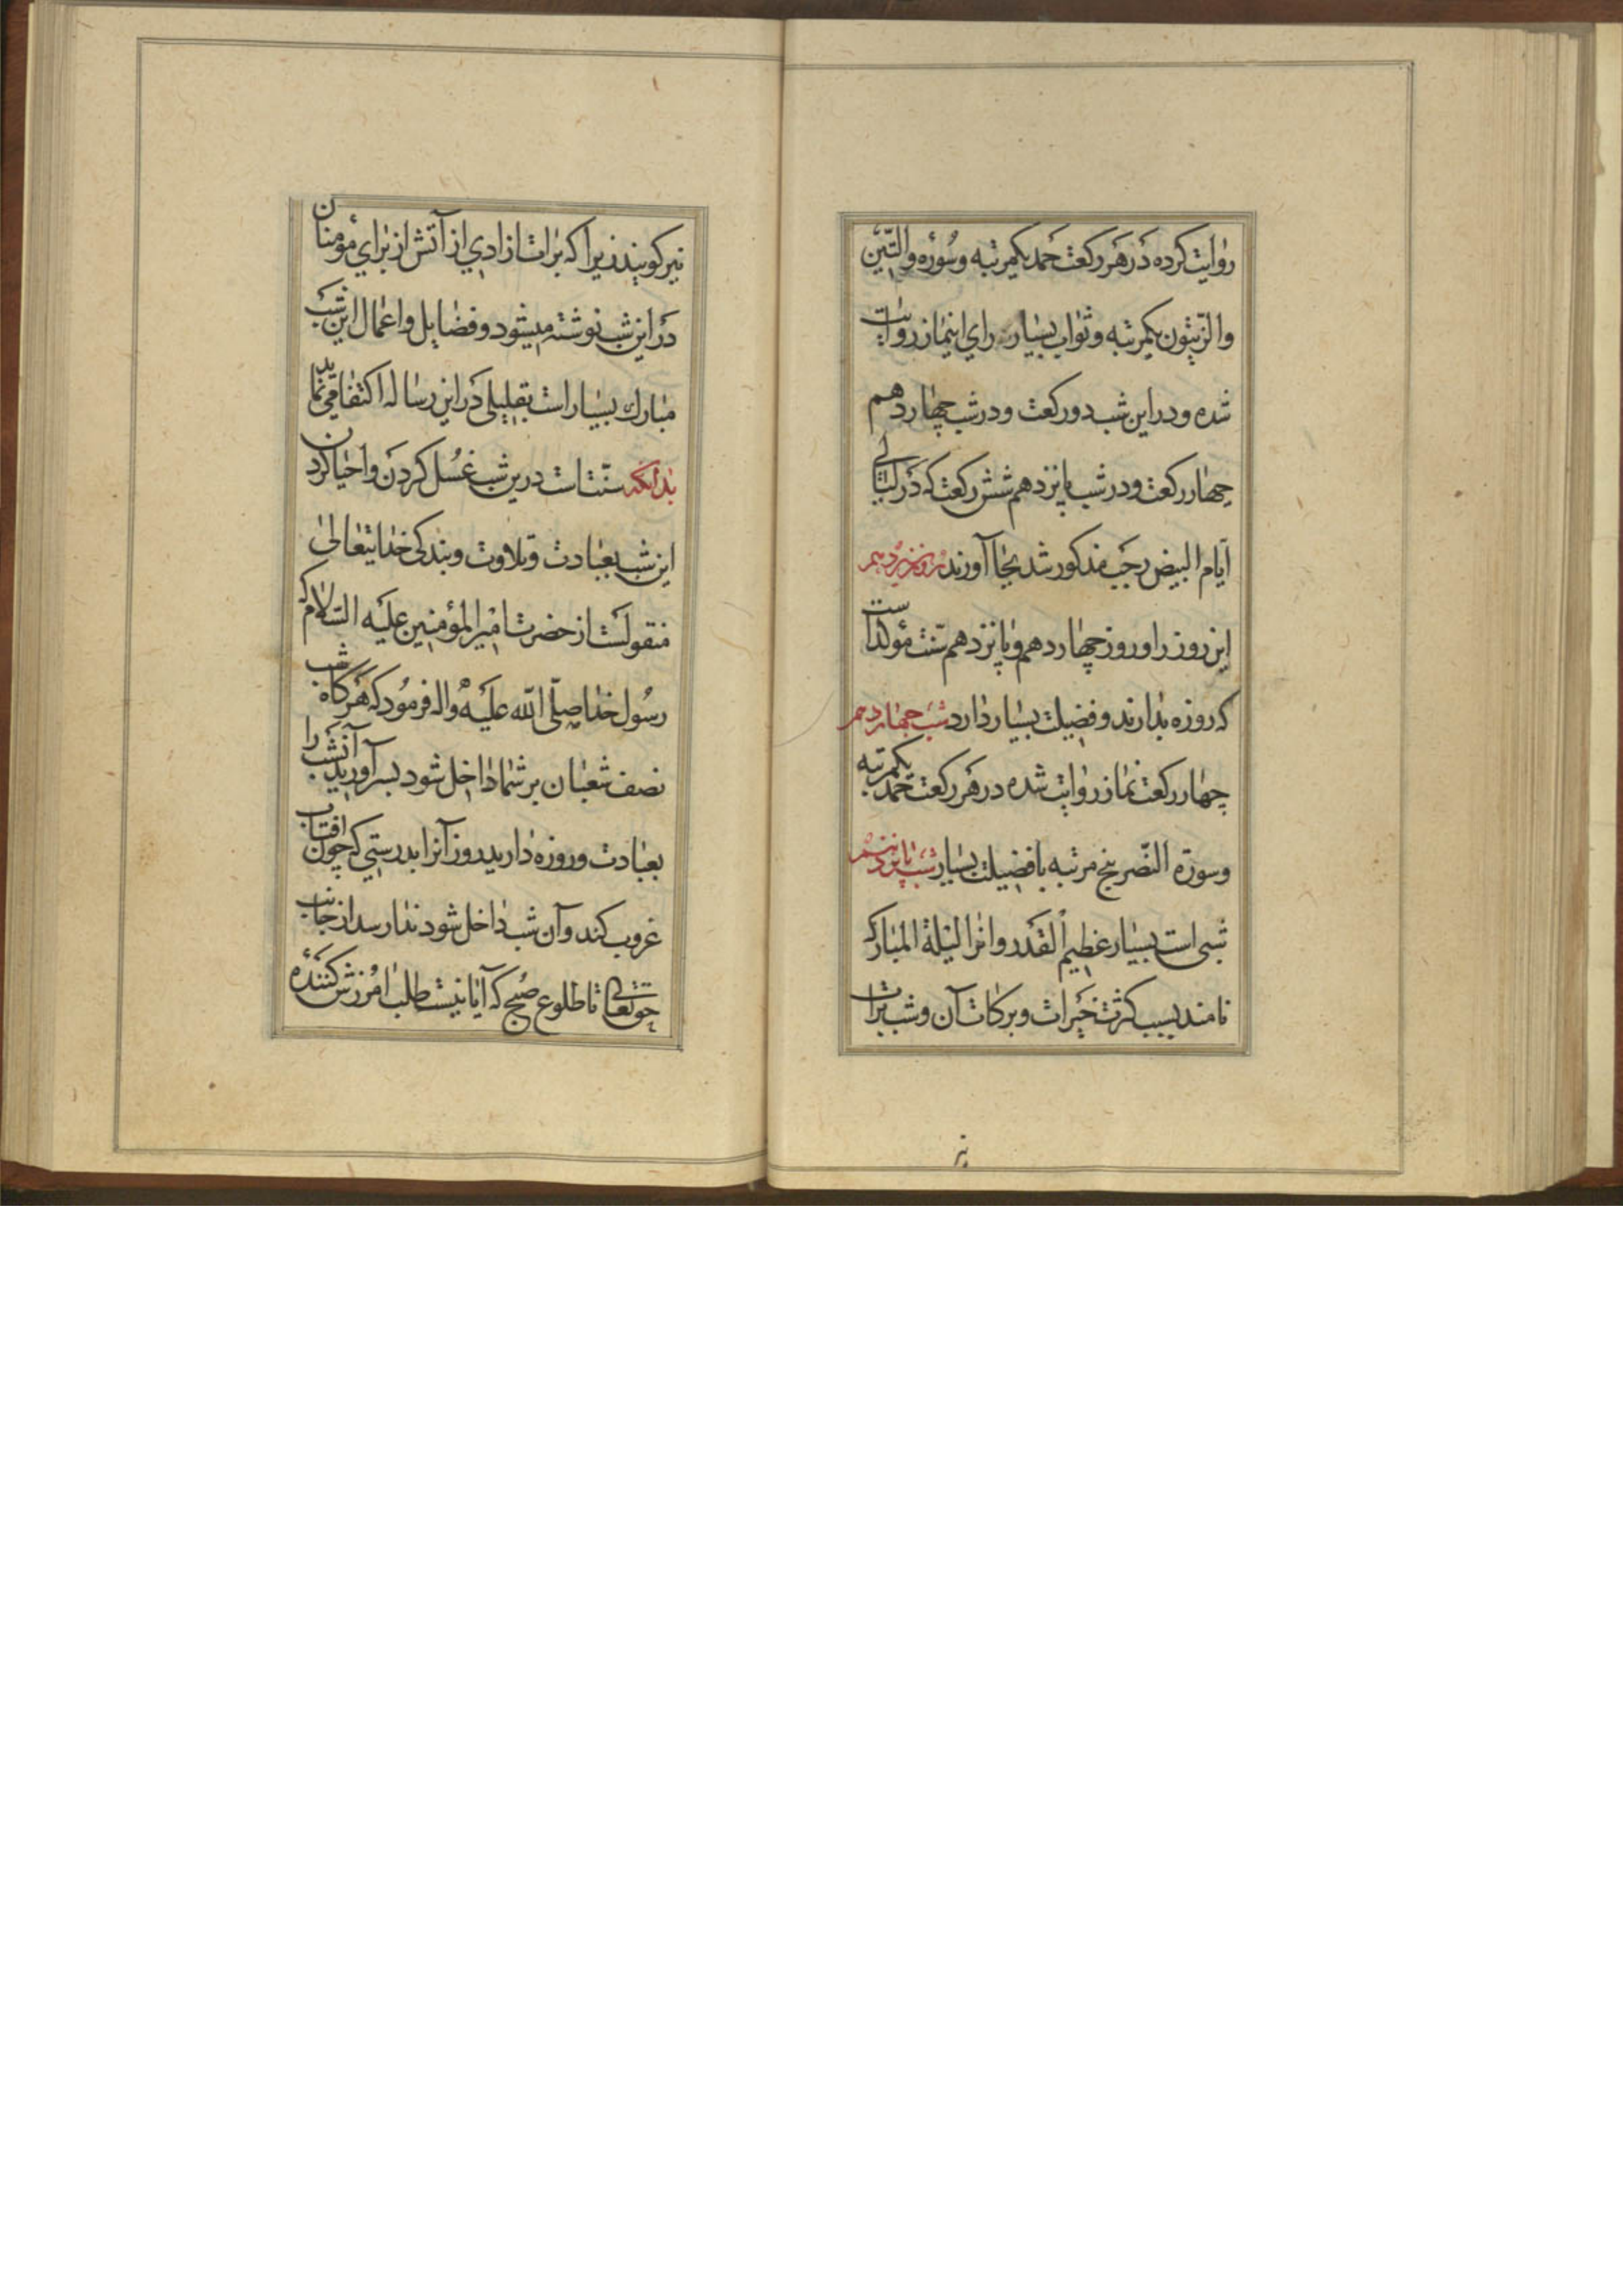 روایت کرده در هر رکعت حمد یکمرتبه و سوره والتین
والزیتون یکمرتبه و ثواب بسیار برای اینماز روایت
شده و در این شب دو رکعت و در شب چهاردهم
چهار رکعت و در شب پانزدهم شش رکعت که در لیالی
ایام البیض رجب مذکور شد بجا آورند روز سیزدهم
این روز را و روز چهاردهم و پانزدهم سنت مؤکد است
که روزه بدارند و فضیلت بسیار دارد شب چهاردهم
چهار رکعت نماز روایت شده در هر رکعت حمد یکمرتبه
و سورة النصر پنج مرتبه با فضیلت بسیار شب پانزدهم
شبی است بسیار عظیم القدر و انرا لیلة المبارکه
نامند بسبب کثرت خیرات و برکات آن و شب برات
نیز
نیز کویند زیرا که برات ازادی از آتش از برای مؤمنان
در این شب نوشته میشود و فضایل و اعمال این شب
مبارك بسیار است بقلیلی در این رساله اکتفا می نماید
بدانکه سنت است درین شب غسل کردن و احیا کردن
این شب بعبادت و تلاوت و بندکی خدایتعالی
منقولست از حضرت امیر المؤمنین علیه السلام که
رسول خدا صلی الله علیه واله فرمود که هرکاه شب
نصف شعبان بر شما داخل شود بسر آورید آنشب را
بعبادت و روزه دارید روز آنرا بدرستی که چون افتاب
غروب کند و آن شب داخل شود ندا رسد از جانب
حق تعالی تا طلوع صبح که آیا نیست طلب امرزش کننده